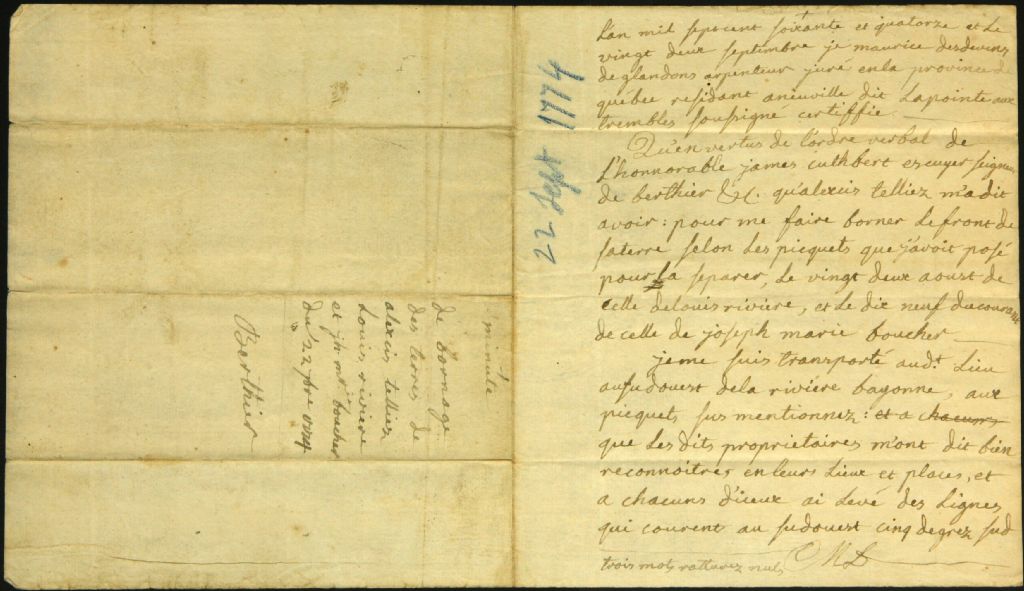 minute
de bornage
des terres de
alexis telliez
Louis riviere
et jh mie boucher
du 22 7bre 1774
Berthier
22 Sept 1774
L'an mil sept cent soixante et quatorze et Le
vingt deux septembre je maurice desdevens
de glandons arpenteur juré en la province de
québec residant aneuville dit Lapointe aux
trembles soussigne certiffie
Qu'en vertus de l'ordre verbal de
L'honnorable james cuthbert escuyer seigneur
de berthier &c. qu'alexis telliez m'a dit
avoir : pour me faire borner Le front de
sa terre selon Les picquets que j'avoit posé
pour La separer, Le vingt deux aoust de
celle de Louis riviere, et Le dix neuf du courant
de celle de joseph marie boucher
je me suis transporté audt. Lieu
au sudouest de la riviére bayonne, aux
picquets sus mentionnez : et a chacuns
que Les dits proprietaires m'ont dit bien
reconnoitre, en leurs Lieux et places, et
a chacuns d'iceux ai Levé des Lignes
qui courent au sudouest cinq degrez sud
trois mots ratturez nuls MD